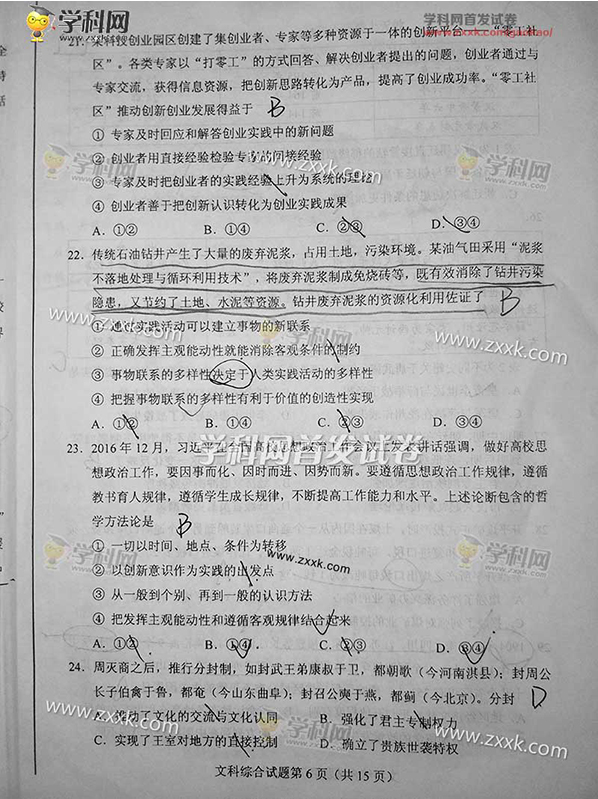 学科网首发试卷
学科网
www.zxxk.com
21. 某科技创业园区创建了集创业者、专家等多种资源于一体的创新平台——“零工社
区”。各类专家以“打零工”的方式回答、解决创业者提出的问题，创业者通过与
专家交流，获得信息资源，把创新思路转化为产品，提高了创业成功率。“零工社
区”推动创新创业发展得益于 B
① 专家及时回应和解答创业实践中的新问题
② 创业者用直接经验检验专家的间接经验
③ 专家及时把创业者的实践经验上升为系统的理论
④ 创业者善于把创新认识转化为创业实践成果
A. ①② B. ①④ C. ②③ D. ③④
22. 传统石油钻井产生了大量的废弃泥浆，占用土地，污染环境。某油气田采用“泥浆
不落地处理与循环利用技术”，将废弃泥浆制成免烧砖等，既有效消除了钻井污染
隐患，又节约了土地、水泥等资源。钻井废弃泥浆的资源化利用佐证了 B
① 通过实践活动可以建立事物的新联系
② 正确发挥主观能动性就能消除客观条件的制约
③ 事物联系的多样性决定于人类实践活动的多样性
④ 把握事物联系的多样性有利于价值的创造性实现
A. ①② B. ①④ C. ②③ D. ③④
www.zxxk.com
学科网首发试卷
23. 2016 年 12 月，习近平在全国高校思想政治工作会议上发表讲话强调，做好高校思
想政治工作，要因事而化、因时而进、因势而新。要遵循思想政治工作规律，遵循
教书育人规律，遵循学生成长规律，不断提高工作能力和水平。上述论断包含的哲
学方法论是 B
① 一切以时间、地点、条件为转移
② 以创新意识作为实践的出发点
③ 从一般到个别、再到一般的认识方法
④ 把发挥主观能动性和遵循客观规律结合起来
A. ①② B. ①④ C. ②③ D. ③④
24. 周灭商之后，推行分封制，如封武王弟康叔于卫，都朝歌（今河南淇县）；封周公
长子伯禽于鲁，都奄（今山东曲阜）；封召公奭于燕，都蓟（今北京）。分封 D
A. 推动了文化的交流与文化认同 B. 强化了君主专制权力
C. 实现了王室对地方的直接控制 D. 确立了贵族世袭特权
文科综合试题第 6 页（共 15 页）